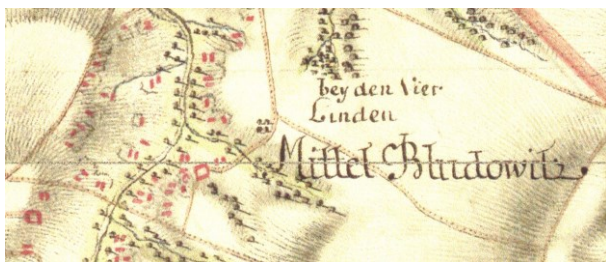 bey den Vier
Linden
Mittel Bludowitz.